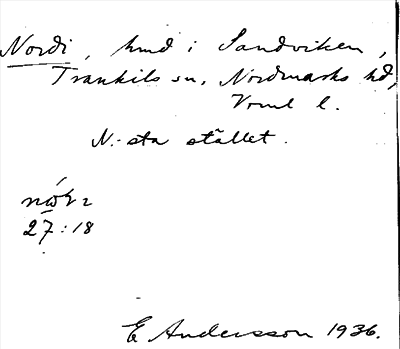 Nordi, hmd i Sandviken,
Trankils sn, Nordmarks hd,
Vrml l.
N:-sta stället.
27:18
E Andersson 1936.